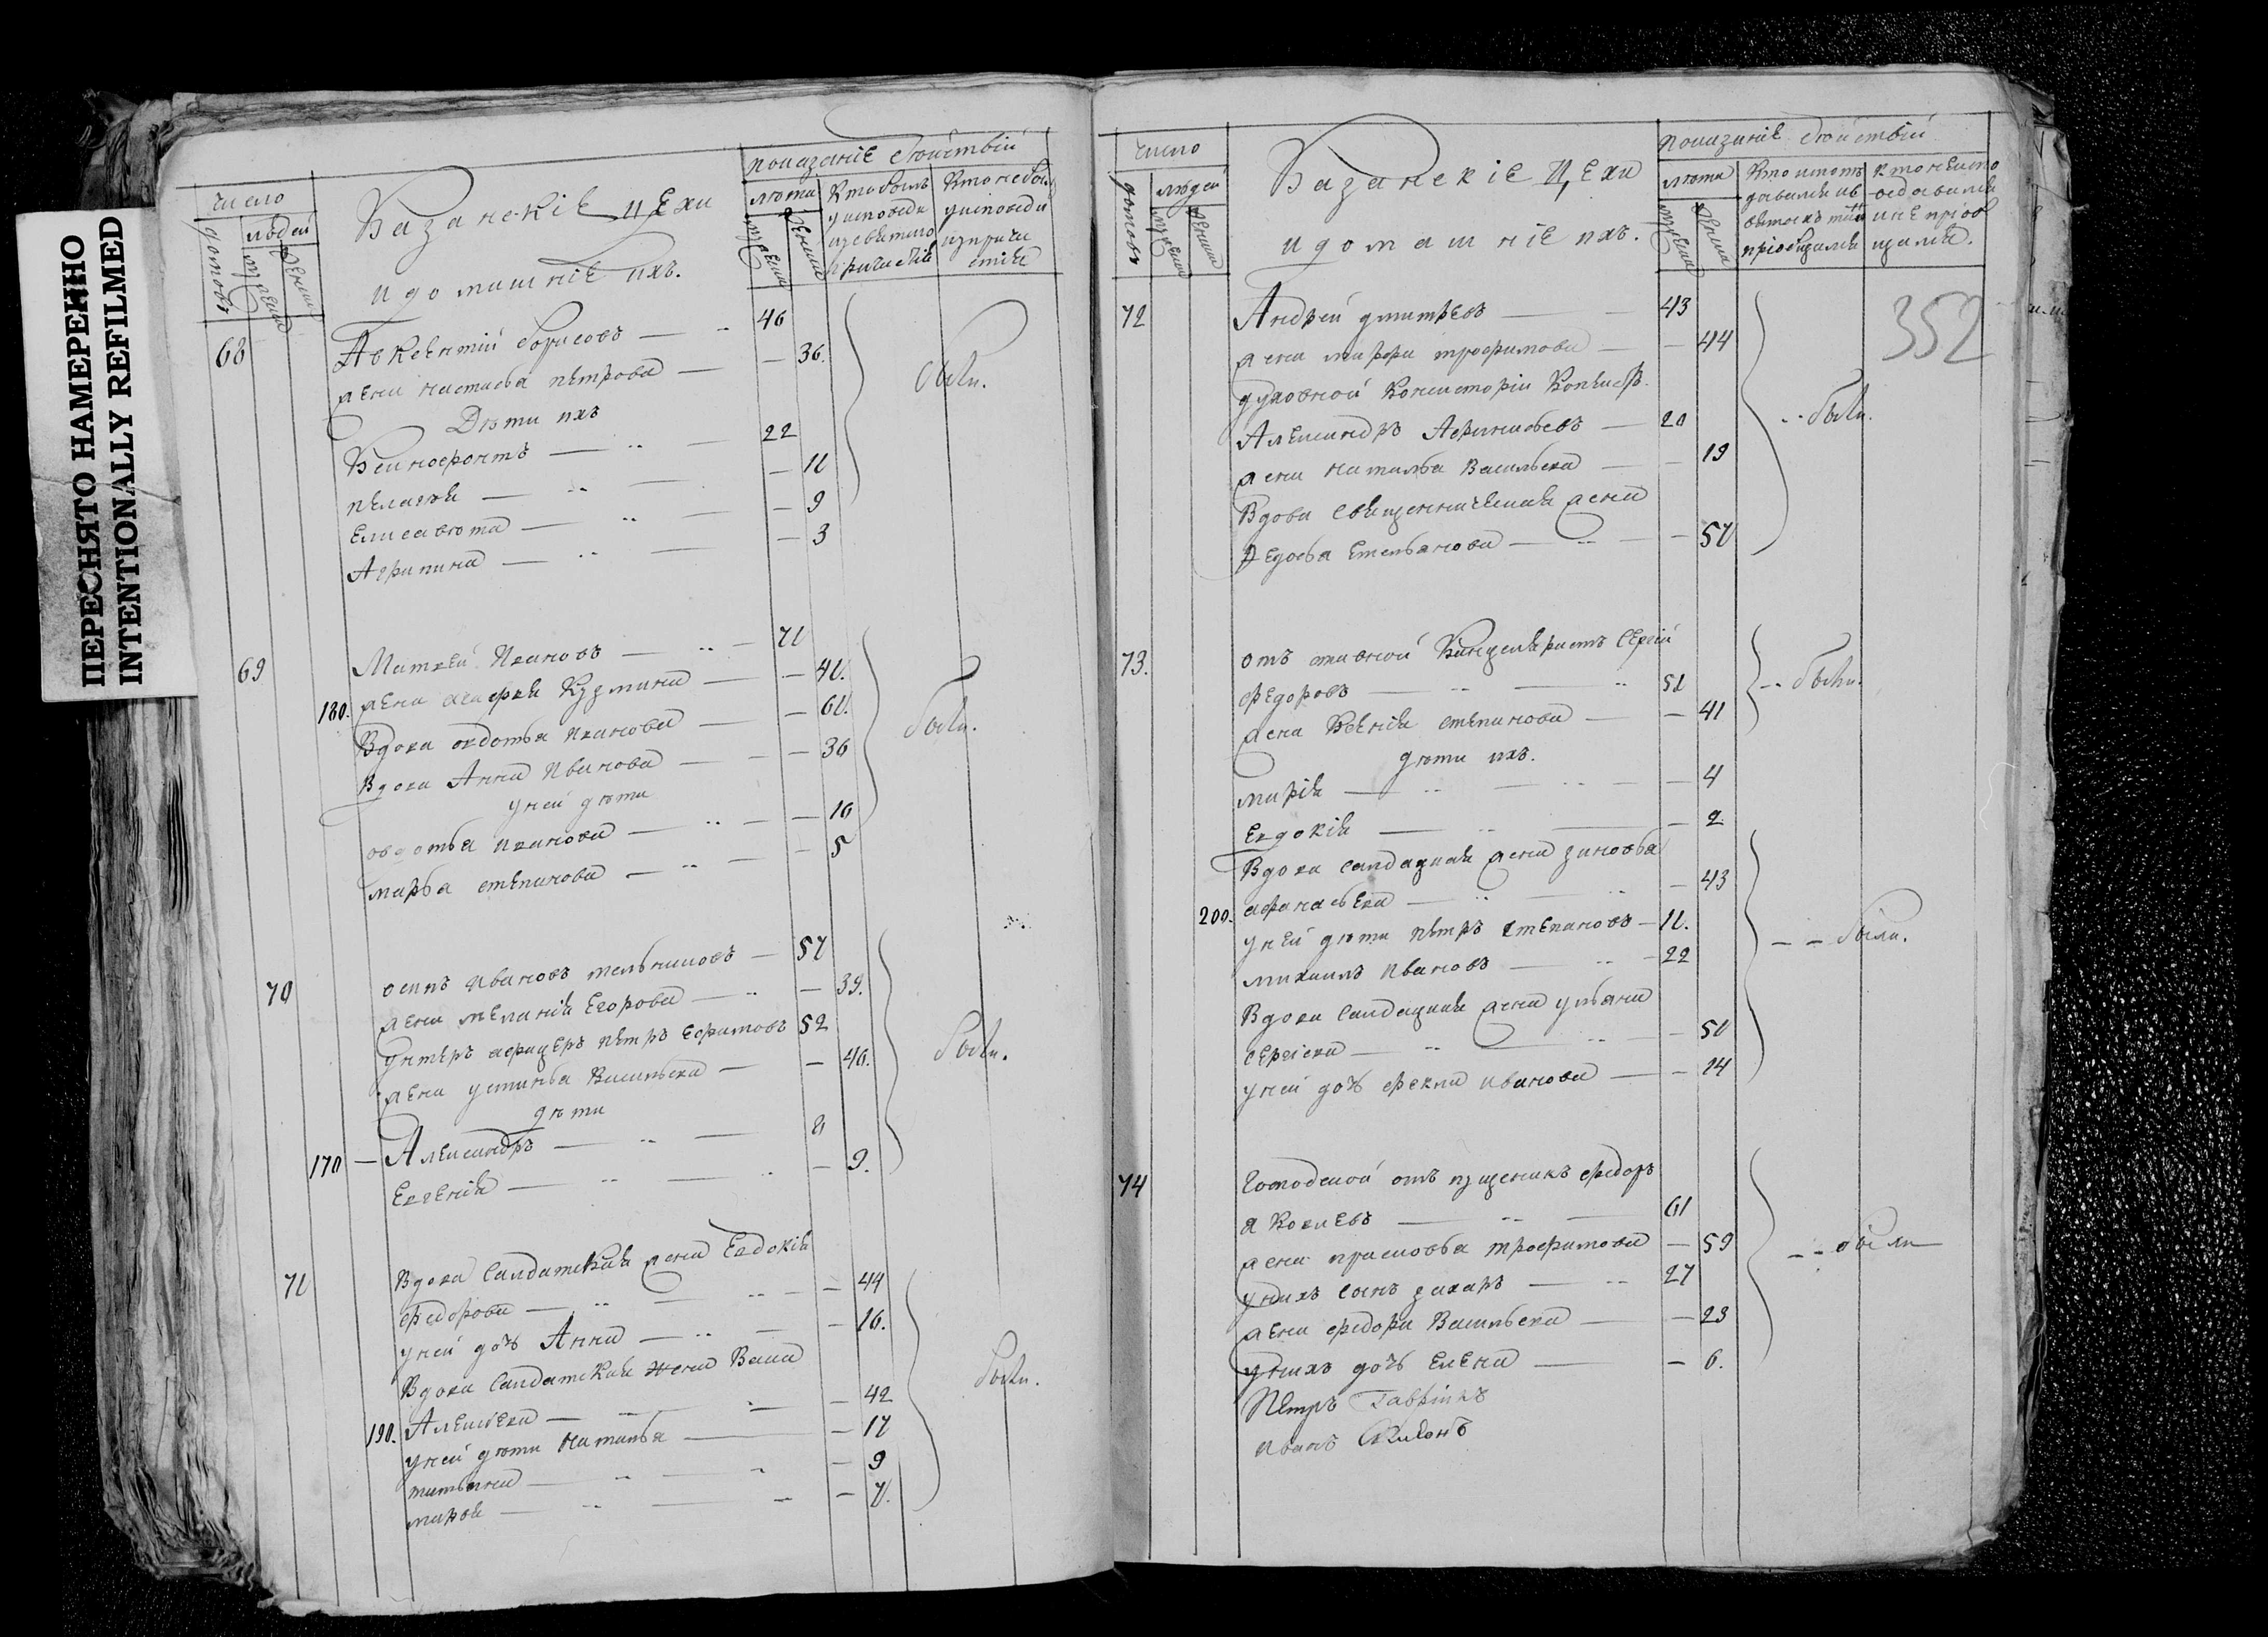 ПЕРЕСНЯТО НАМЕРЕННО
INTENTIONALLY REFILMED
число
домовъ
людей
мужеска
женска
Казанскіе цехи
и домашніе ихъ.
показаніе действій
лѣта
мужеска
женска
Кто былъ у исповѣди и святаго причастія
Кто не былъ у исповѣди и причастія
68 Авксентій борисовъ — 46
жена настасья петрова — 36.
Дѣти ихъ
Ксинофонтъ — 22
пелагея — 11
Елисавѣта — 9
Агрипина — 3
были.
69 Матвей Ивановъ — 71
180. жена агафья Кузмина — 41.
Вдова овдотья Иванова — 61.
Вдова Анна Иванова — 36
у ней дѣти
овдотья иванова — 10
марья степанова — 5
были.
70 осипъ Ивановъ мельниковъ — 57
жена меланія Егорова — 39.
унтеръ афицеръ петръ Ефимовъ 52
жена устинья Васильева — 46.
дѣти
170 — Александръ — 8
Евгенія — 9.
были.
71 Вдова Салдатская жена Евдокія
Федорова — 44
у ней дочь Анна — 16.
Вдова Салдатская жена Васса
190. Алексѣева — 42
у ней дѣти наталья — 17
татьяна — 9
марья — 7.
были.
число
домовъ
людей
мужеска
женска
Казанскіе цехи
и домашніе ихъ.
показаніе действій
лѣта
мужеска
женска
352
72 Андрей дмитревъ — 43
жена марфа трофимова — 44
духовной Консисторіи Копеистъ
Александръ Афанасьевъ — 20
жена наталья Васильева — 19
Вдова Священническая жена
Федосья Емельянова — 57
были.
73. отъ ставной Канцеляристъ Сергей
Федоровъ — 51
жена Ксенія степанова — 41
дѣти ихъ.
марія — 4
Евдокія — 2
были.
Вдова Салдацкая жена зиновья
200. афанасьева — 43
у ней дѣти петръ степановъ — 11.
михаилъ Ивановъ — 22
Вдова Салдацкая жена ульяна
Сергіева — 51
у ней дочь фекла Иванова — 14
были.
74 Господской отъ пущеникъ федоръ
яковлевъ — 61
жена прасковья трофимова — 59
у нихъ Сынъ захаръ — 27
жена федора Васильева — 23
у нихъ дочь Елена — 6.
были
Петръ
Иванъ